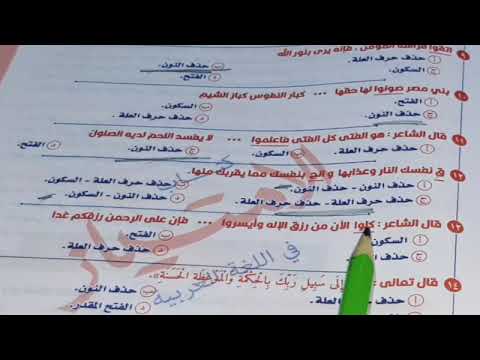 ٩ اتقوا فراسة المؤمن ، فإنه يرى بنور الله
أ) حذف حرف العلة. ب) حذف النون.
ج) السكون. د) الفتح.
١٠ بني مصر صونوا لها حقها ... كبار النفوس كبار الشيم
أ) الفتح. ب) السكون.
ج) حذف النون. د) حذف حرف العلة.
١١ قال الشاعر : هو الفتى كل الفتى فاعلموا ... لا يفسد اللحم لديه الصلول
أ) حذف حرف العلة. ب) السكون. ج) حذف النون. د) الفتح.
١٢ ق نفسك النار وعذابها و الح بنفسك مما يقربك منها.
أ) حذف النون - حذف النون. ب) حذف حرف العلة - السكون.
ج) حذف حرف العلة - حذف حرف العلة. د) حذف النون - السكون.
١٣ قال الشاعر : كلوا الآن من رزق الإله وأيسروا ... فإن على الرحمن رزقكم غدا
أ) السكون ب) الفتح.
د) حذف حرف العلة.
١٤ قال تعالى : إلى سبيل ربك بالحكمة والموعظة الحسنة
أ) حذف العلة. ب) حذف النون.
د) الفتح المقدر.
في اللغة العربية